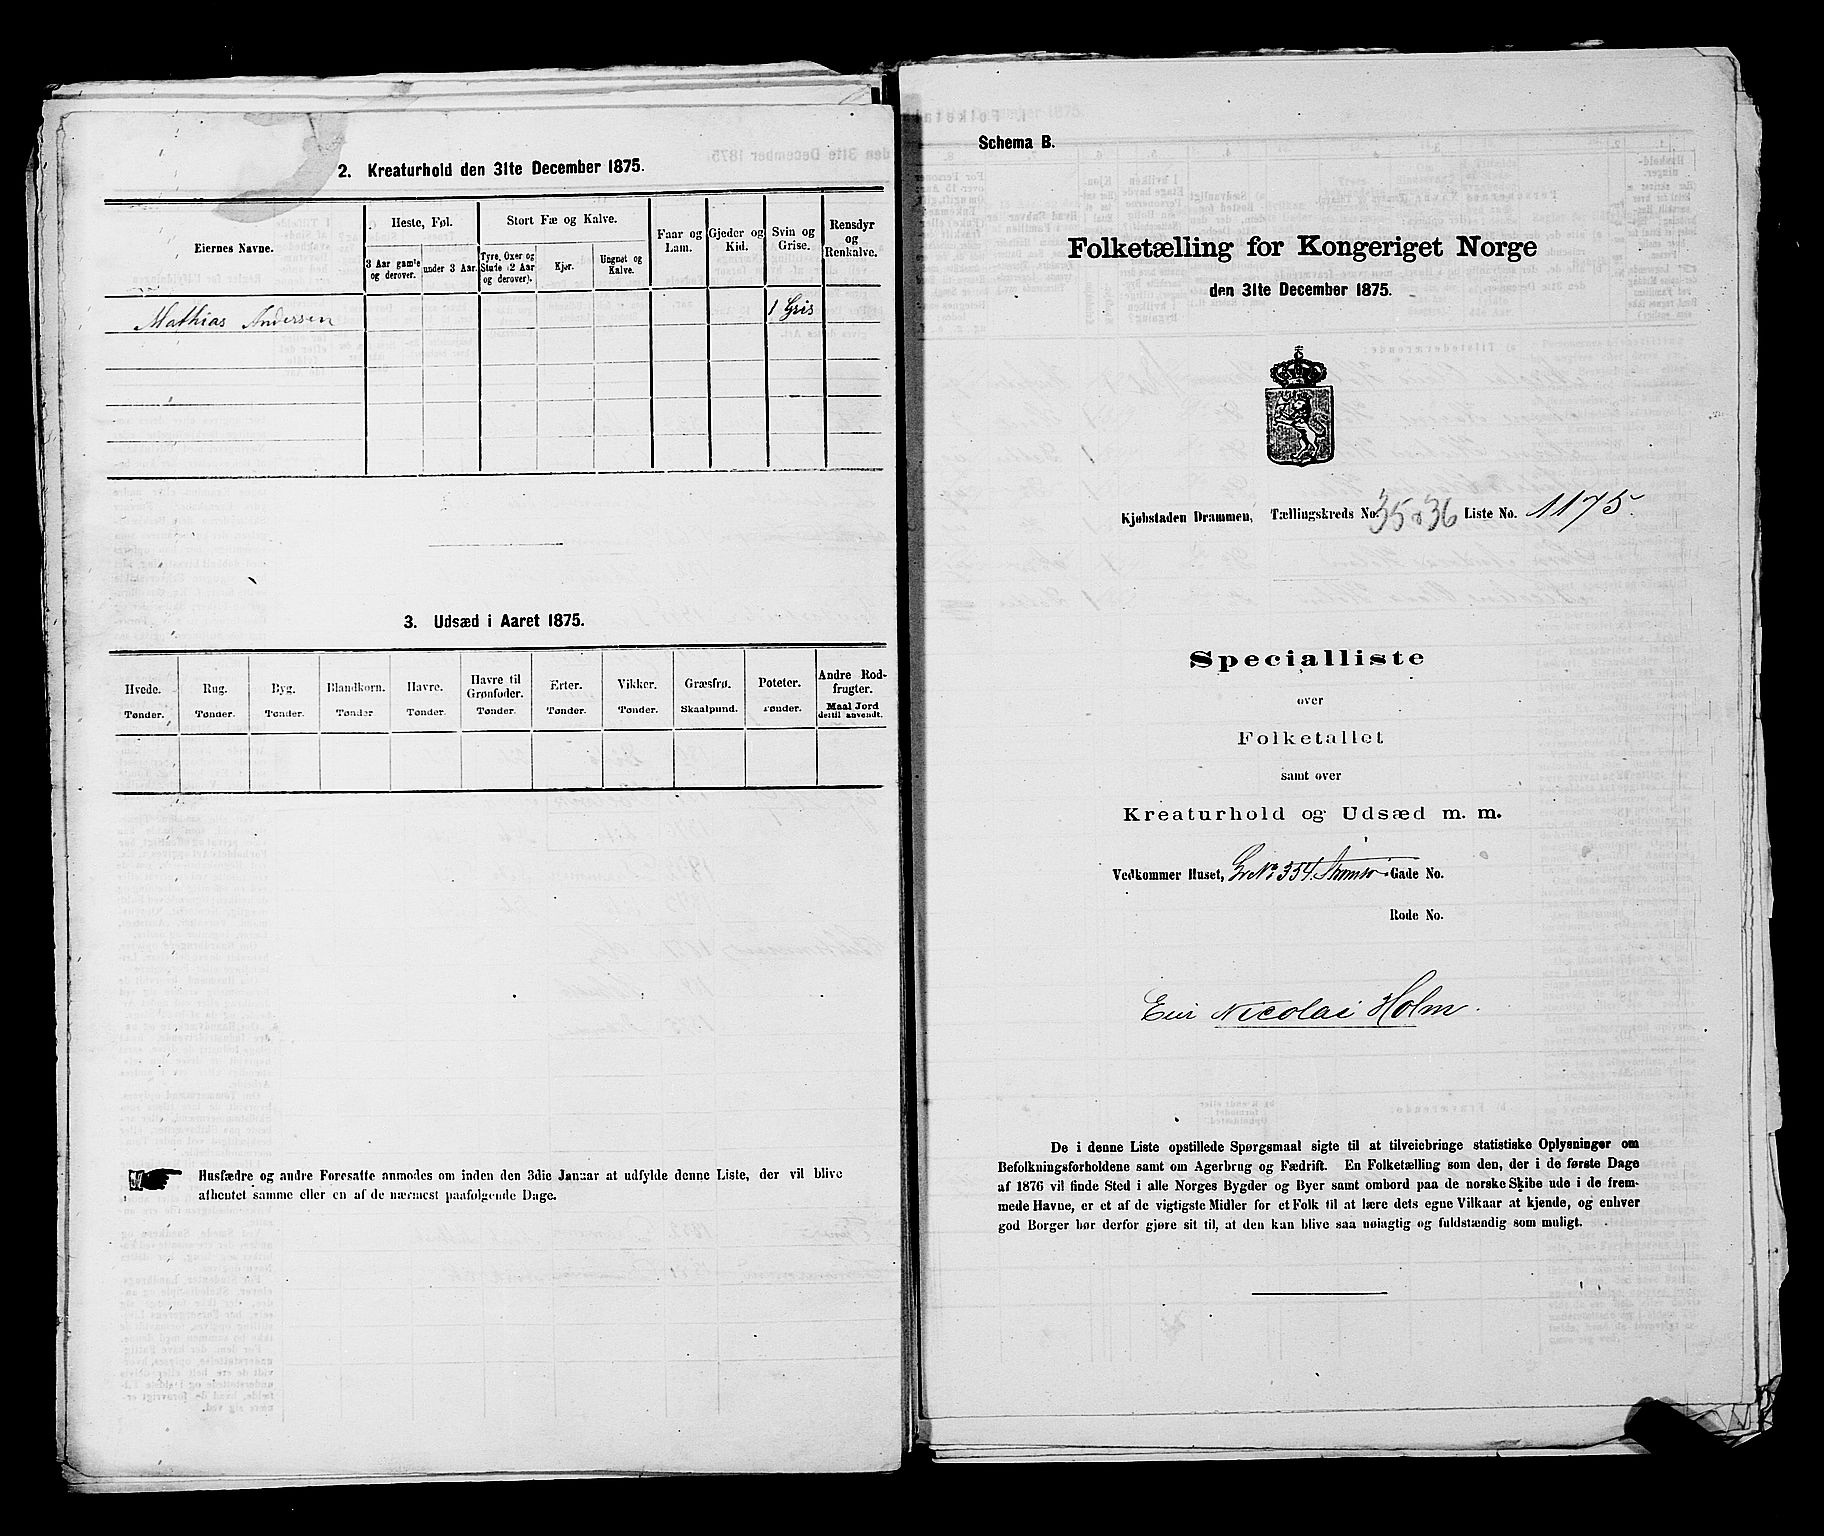 2. Kreaturhold den 31te December 1875.
Eiernes Navne.
Heste, Føl.
Stort Fæ og Kalve.
Faar og Lam.
Gjeder og Kid.
Svin og Grise.
Rensdyr og Renkalve.
3 Aar gamle og derover.
under 3 Aar.
Tyre, Oxer og Stude (2 Aar og derover).
Kjør.
Ungnøt og Kalve.
Mathias Andersen 1 Gris
3. Udsæd i Aaret 1875.
Hvede. Rug. Byg. Blandkorn. Havre. Havre til Grønfoder. Erter. Vikker. Græsfrø. Poteter. Andre Rodfrugter.
Tønder. Tønder. Tønder. Tønder Tønder. Tønder. Tønder. Tønder. Skaalpund. Tønder. Maal Jord dertil anvendt.
Husfædre og andre Foresatte anmodes om inden den 3die Januar at udfylde denne Liste, der vil blive
afhentet samme eller en af de nærmest paafølgende Dage.
Schema B.
Folketælling for Kongeriget Norge
den 31te December 1875.
Kjøbstaden Drammen, Tællingskreds No. 35 o 36 Liste No. 1175.
Specialliste
over
Folketallet
samt over
Kreaturhold og Udsæd m. m.
Vedkommer Huset, Gr No 354 Strømsø Gade No.
Rode No.
Eier Nicolai Holm.
De i denne Liste opstillede Spørgsmaal sigte til at tilveiebringe statistiske Oplysninger om
Befolkningsforholdene samt om Agerbrug og Fædrift. En Folketælling som den, der i de første Dage
af 1876 vil finde Sted i alle Norges Bygder og Byer samt ombord paa de norske Skibe ude i de frem-
mede Havne, er et af de vigtigste Midler for et Folk til at lære dets egne Vilkaar at kjende, og enhver
god Borger bør derfor gjøre sit til, at den kan blive saa nøiagtig og fuldstændig som muligt.